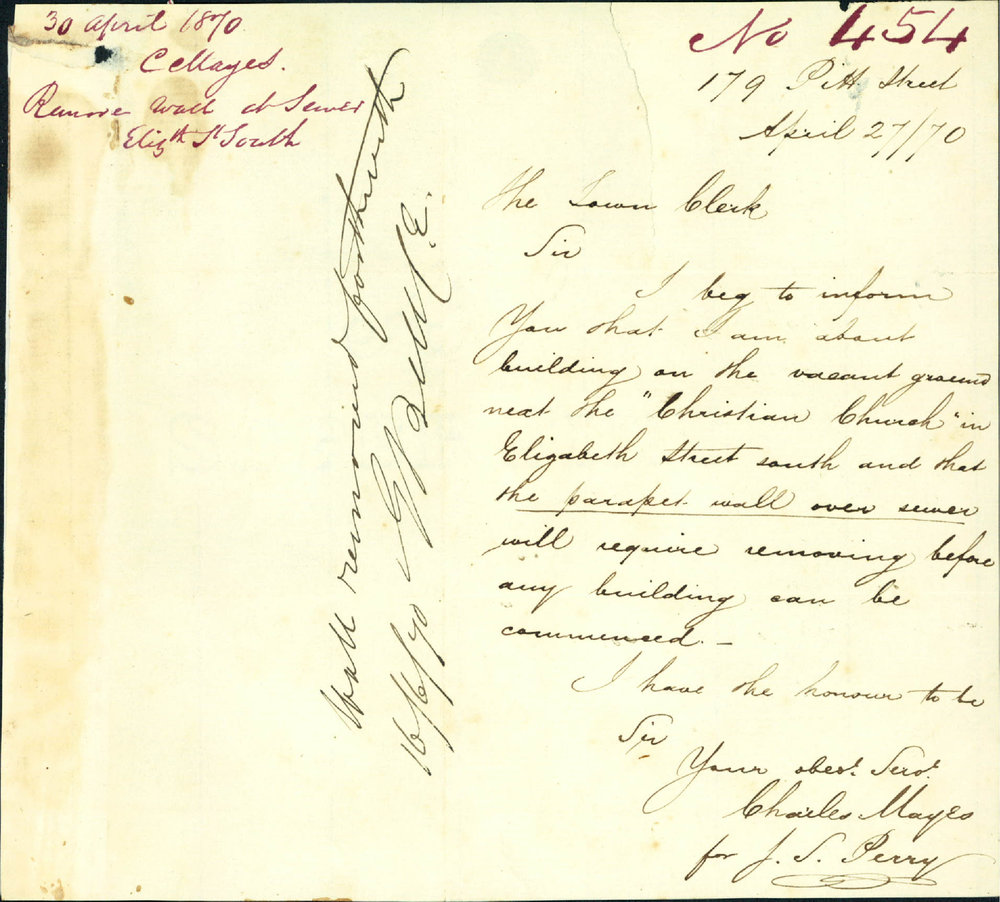 30 April 1870
C Mayes.
Remove Wall at Sewer
Elizth St South
No 454
179 Pitt Street
April 27/70
The Town Clerk
Sir
I beg to inform
You that I am about
building on the vacant ground
next the "Christian Church" in
Elizabeth Street south and that
the parapet wall over sewer
will require removing before
any building can be
commenced. —
I have the honour to be
Sir
Your obedt. Servt.
Charles Mayes
for J. S. Perry
Wall removed forthwith
16/6/70